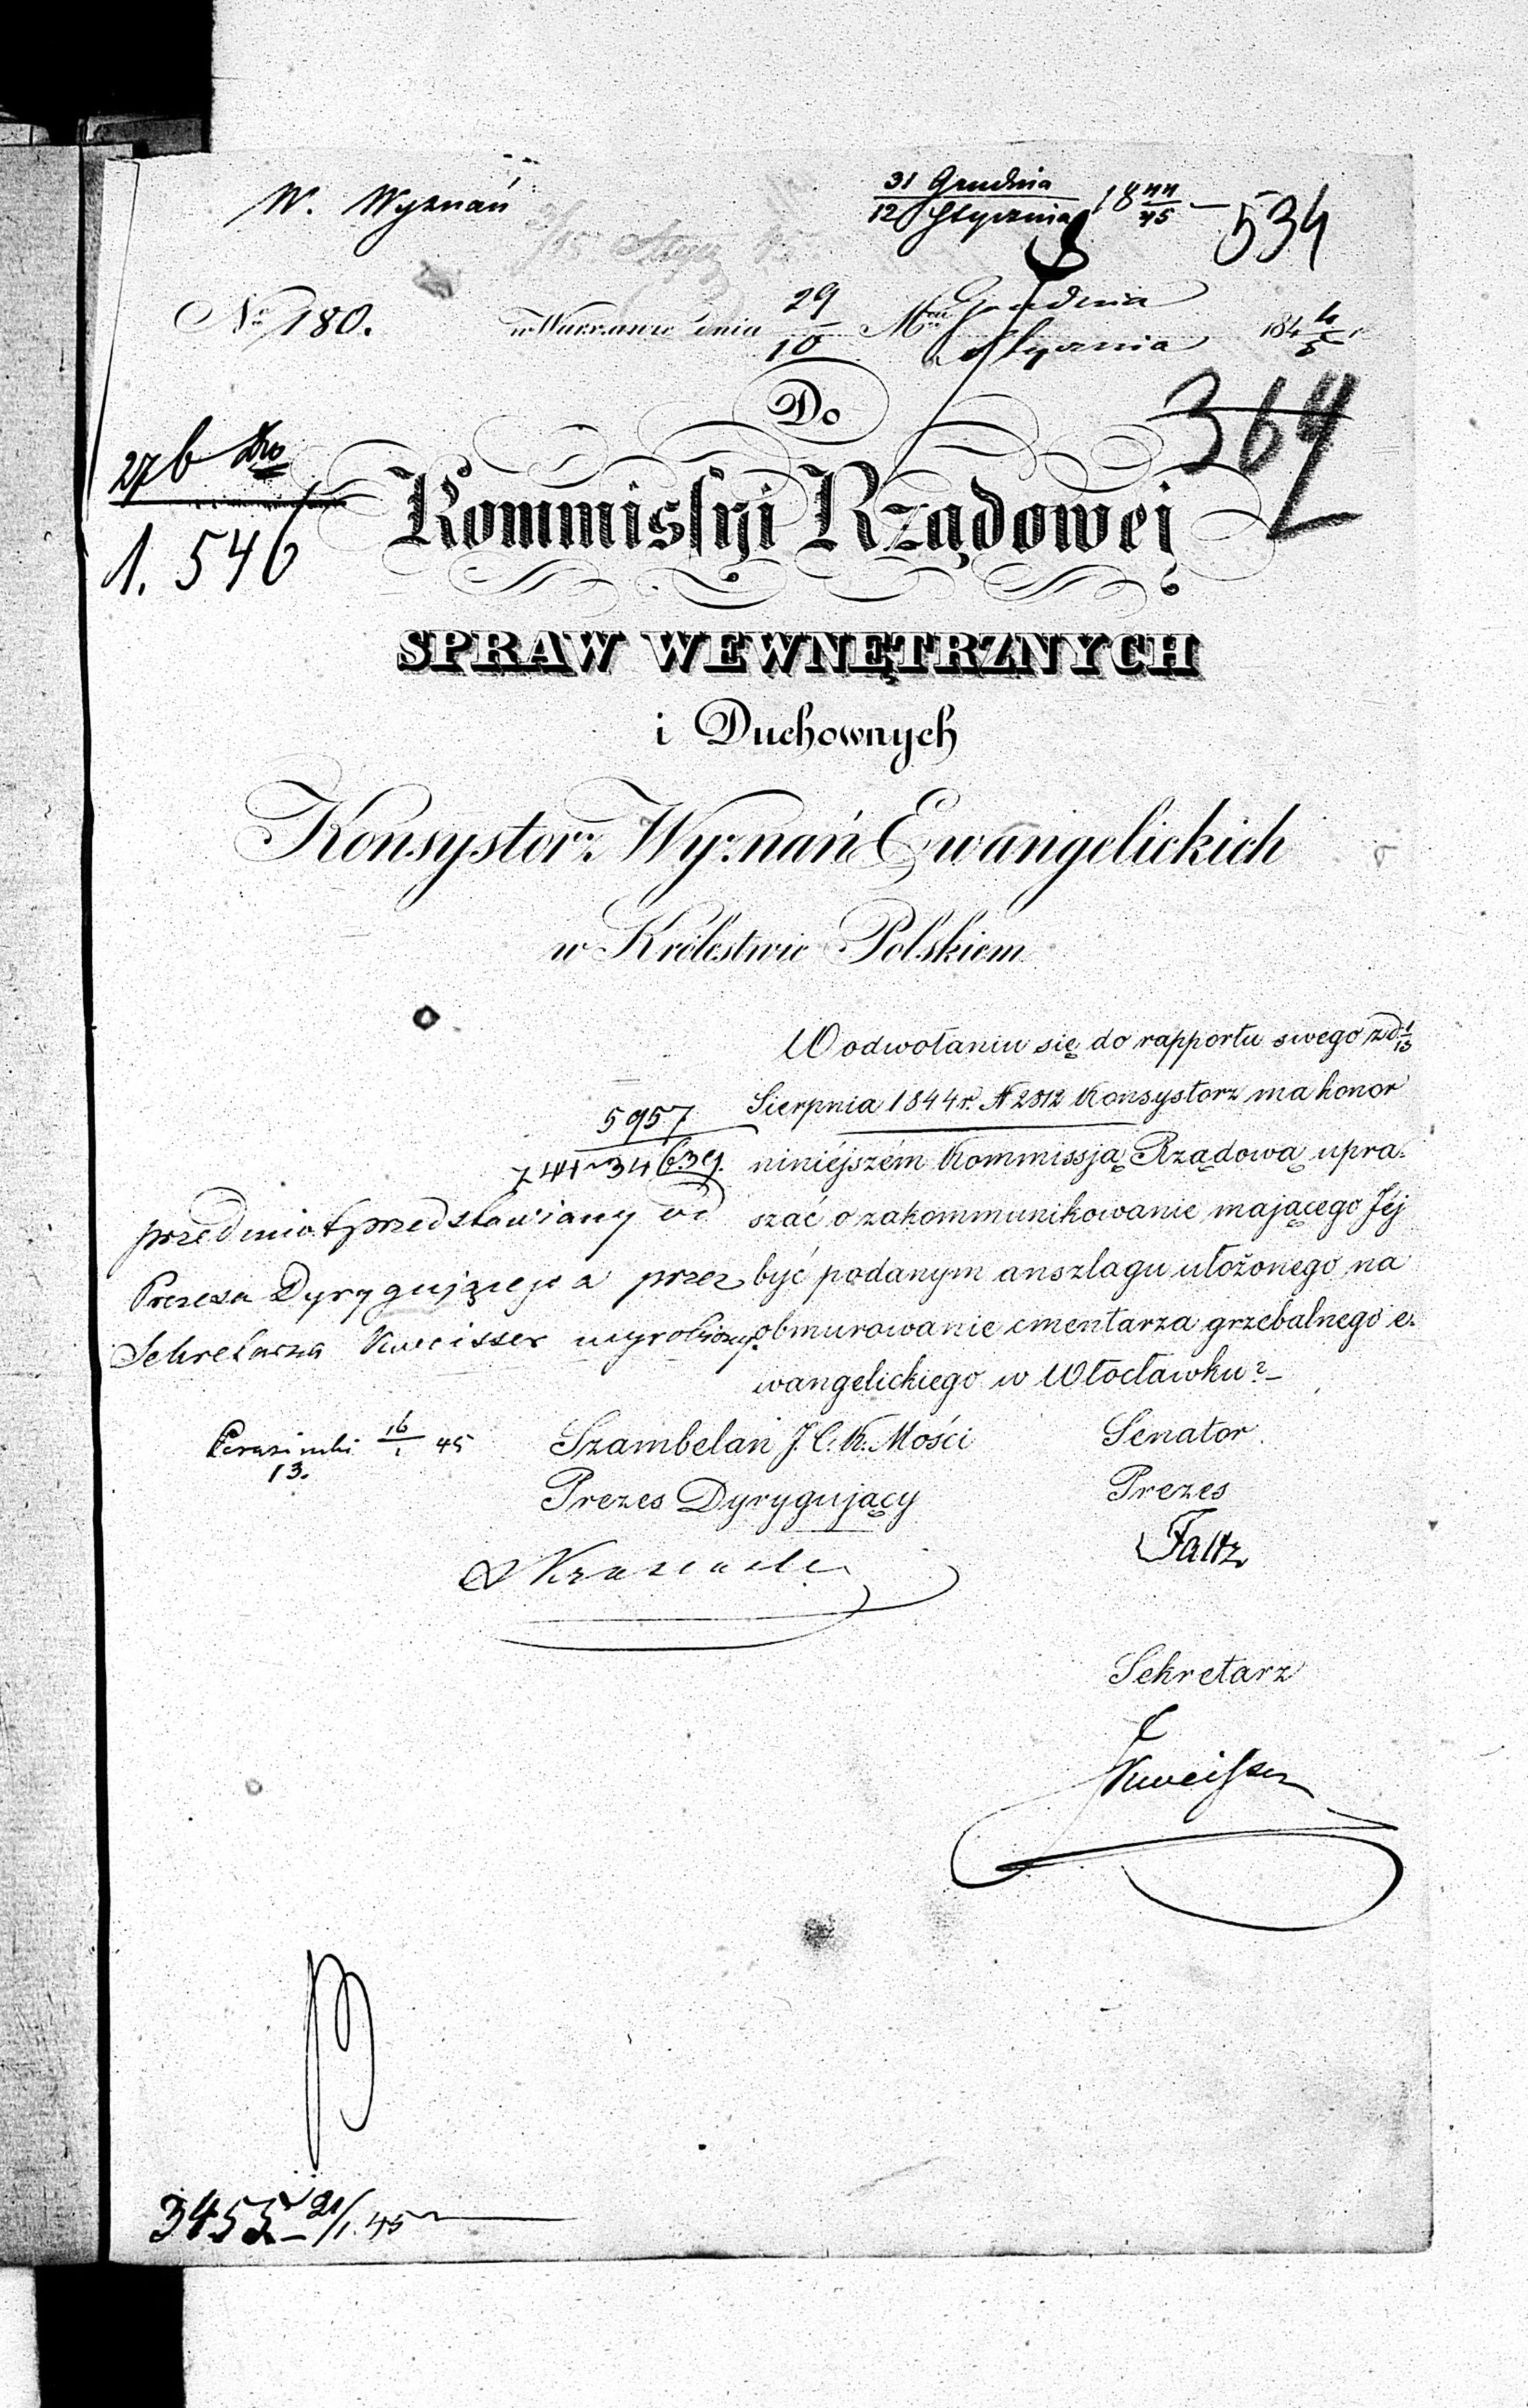 W. Wyznań
31 Grudnia
12 Stycznia 18 44/45 — 534
No 180. w Warszawie dnia 29/10 Mca Grudnia Stycznia 184 4/5 r.
364
Do
27b
1. 546
Kommissyi Rządowej
SPRAW WEWNĘTRZNYCH
i Duchownych
Konsystorz Wyznań Ewangelickich
w Królestwie Polskiem
W odwołaniu się do rapportu swego z d. 1/13
Sierpnia 1844 r. N 2812 Konsystorz ma honor
niniéjszém Kommissją Rządową upra-
szać o zakommunikowanie mającego Jéj
być podanym anszlagu ułożonego na
obmurowanie cmentarza grzebalnego e-
wangelickiego w Włocławku?—
5957
przedmiot przedstawiany od
Prezesa Dyrygującego a przez
Sekretarza Kweisser wyrobiony.
16/1 45
13.
Szambelan J. C. K. Mości
Prezes Dyrygujący
Senator
Prezes
Faltz
Sekretarz
Kweisser
3455 21/1. 45